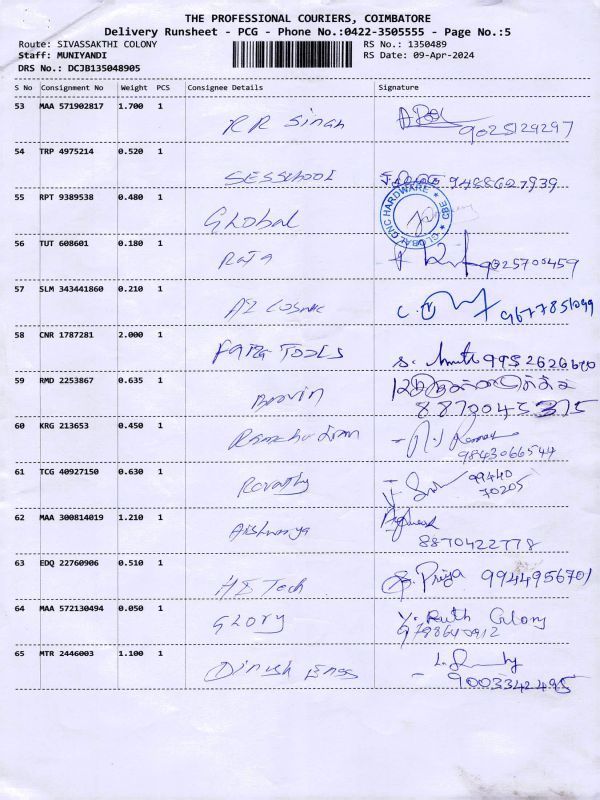 THE PROFESSIONAL COURIERS, COIMBATORE
Delivery Runsheet - PCG - Phone No.:0422-3505555 - Page No.:5
Route: SIVASSAKTHI COLONY RS No.: 1350489
Staff: MUNIYANDI RS Date: 09-Apr-2024
DRS No.: DCJB135048905
S No Consignment No Weight PCS Consignee Details Signature
53 MAA 571902817 1.700 1
RR Singh 9025129297
54 TRP 4975214 0.520 1
SES School 9488627939
55 RPT 9389538 0.480 1
GLOBAL GLOBAL CNC HARDWARE CBE
56 TUT 608601 0.180 1
Raja 9025700459
57 SLM 343441860 0.210 1
9677851099
58 CNR 1787281 2.000 1
TOOLS S. 9952626620
59 RMD 2253867 0.635 1
8870045375
60 KRG 213653 0.450 1
9843066544
61 TCG 40927150 0.630 1
Revathy 99440
70205
62 MAA 300814019 1.210 1
Aishwarya
8870422778
63 EDQ 22760906 0.510 1
HI Tech Priya 9944956701
64 MAA 572130494 0.050 1
GLORY Y. Ruth Glory
9798640912
65 MTR 2446003 1.100 1
Dinesh Engg
9003342495